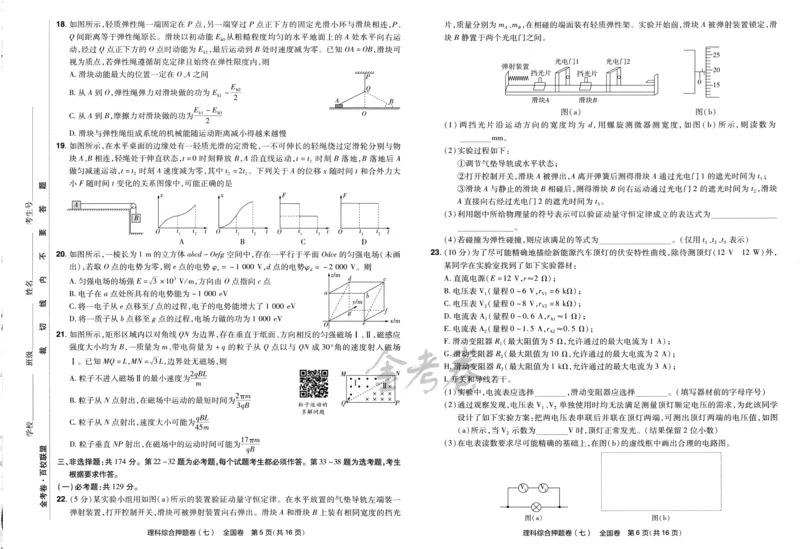 18. 如图所示,轻质弹性绳一端固定在 P 点,另一端穿过 P 点正下方的固定光滑小环与滑块相连,P、
Q 间距离等于弹性绳原长。滑块以初动能 Ek0从粗糙程度均匀的水平地面上的 A 处水平向右运
动,经过 Q 点正下方的 O 点时动能为 Ek1,最后运动到 B 处时速度减为零。已知 OA=OB,滑块可
视为质点,若弹性绳遵循胡克定律且始终在弹性限度内,则
A. 滑块动能最大的位置一定在 O、A 之间
B. 从 A 到 O,弹性绳弹力对滑块做的功为 Ek1-Ek0/2
C. 从 A 到 B,摩擦力对滑块做的功为 (Ek1-Ek0)/2
D. 滑块与弹性绳组成系统的机械能随运动距离减小得越来越慢
P
Q
A
B
O
19. 如图所示,在水平桌面的边缘处有一轻质光滑的定滑轮,一不可伸长的轻绳绕过定滑轮分别与物
块 A、B 相连,轻绳处于伸直状态,t=0 时刻释放 B,A 沿直线运动,t=t1 时刻 B 落地,B 落地后 A
做匀减速运动,t=t2 时刻 A 速度减为零,其中 t2=2t1。下列关于 A 的位移 x 随时间 t 和合外力大
小 F 随时间 t 变化的关系图像中,可能正确的是
A
B
x
O t1 t2 t
A
x
O t1 t2 t
B
F
O t1 t2 t
C
F
O t1 t2 t
D
20. 如图所示,一棱长为 1 m 的立方体 abcd-Oefg 空间中,存在一平行于平面 Odce 的匀强电场(未画
出),若取 O 点的电势为零,则 e 点的电势 φe=-1 000 V,d 点的电势φd=-2 000 V。则
A. 匀强电场的场强 E=√3×10³ V/m,方向由 O 点指向 c 点
B. 电子在 a 点处所具有的电势能为-1 000 eV
C. 将一电子从 e 点移至 f 点的过程,电子的电势能增大了 1 000 eV
D. 将一质子从 b 点移至 g 点的过程,电场力做的功为 1 000 eV
z/m
y/m
x/m
21. 如图所示,矩形区域内以对角线 QN 为边界,存在垂直于纸面、方向相反的匀强磁场Ⅰ、Ⅱ,磁感应
强度大小均为 B,一质量为 m、带电荷量为+q 的粒子从 Q 点以与 QN 成 30°角的速度射入磁场
Ⅰ。已知 MQ=L,MN=√3L,边界处无磁场,则
A. 粒子不进入磁场Ⅱ的最小速度为2qBL/m
B. 粒子从 N 点射出,在磁场中运动的最短时间为2πm/3qB
C. 粒子从 N 点射出,速度大小可能为qBL/45m
D. 粒子垂直 NP 射出,在磁场中的运动时间可能为17πm/qB
粒子运动的
多解问题
M
N
Q
P
三、非选择题:共 174 分。第 22~32 题为必考题,每个试题考生都必须作答。第 33~38 题为选考题,考生
根据要求作答。
(一)必考题:共 129 分。
22. (5 分)某实验小组用如图(a)所示的装置验证动量守恒定律。在水平放置的气垫导轨左端装一
弹射装置,打开控制开关,滑块可被弹射装置向右弹出。滑块 A 和滑块 B 上装有相同宽度的挡光
理科综合押题卷(七) 全国卷 第 5 页(共 16 页)
金考卷·百校联盟
学校
班级
姓名
考生号
裁 切 线 内 不 要 答 题
片,质量分别为 mA、mB,在相碰的端面装有轻质弹性架。实验开始前,滑块 A 被弹射装置锁定,滑
块 B 静置于两个光电门之间。
弹射装置
光电门1
光电门2
挡光片
挡光片
滑块A
滑块B
图(a)
25
20
15
0
图(b)
(1)两挡光片沿运动方向的宽度均为 d,用螺旋测微器测宽度,如图(b)所示,则读数为
mm。
(2)实验过程如下:
①调节气垫导轨成水平状态;
②打开控制开关,滑块 A 被弹出,A 离开弹簧后测得滑块 A 通过光电门 1 的遮光时间为 t1;
③滑块 A 与静止的滑块 B 相碰后,测得滑块 B 向右运动通过光电门 2 的遮光时间为 t2,滑块
A 直接向右经过光电门 2 的遮光时间为 t3。
(3)利用题中所给物理量的符号表示可以验证动量守恒定律成立的表达式为
。
(4)若碰撞为弹性碰撞,则应该满足的等式为 。(仅用 t1、t2、t3 表示)
23. (10 分)为了尽可能精确地描绘新能源汽车顶灯的伏安特性曲线,除待测顶灯(12 V 12 W)外,
某同学在实验室找到了如下实验器材:
A. 直流电源(E=12 V,r≈2 Ω);
B. 电压表 V1(量程 0~6 V,rV1=6 kΩ);
C. 电压表 V2(量程 0~8 V,rV2=8 kΩ);
D. 电流表 A1(量程 0~0.6 A,rA1≈1 Ω);
E. 电流表 A2(量程 0~1.5 A,rA2≈0.5 Ω);
F. 滑动变阻器 R1(最大阻值为 5 Ω,允许通过的最大电流为 1 A);
G. 滑动变阻器 R2(最大阻值为 10 Ω,允许通过的最大电流为 2 A);
H. 滑动变阻器 R3(最大阻值为 1 kΩ,允许通过的最大电流为 3 A);
I. 开关和导线若干。
(1)实验中,电流表应选择 ,滑动变阻器应选择 。(填写器材前的字母序号)
(2)通过观察发现,电压表 V1、V2 单独使用时均无法满足测量顶灯额定电压的需求,为此该同学
设计了如下实验方案:把两电压表串联后并联在顶灯两端,可测出顶灯两端的电压值,如图
(a)所示,当 V2 示数为 V 时,顶灯正常发光。(结果保留 2 位小数)
(3)在电表读数要求尽可能精确的基础上,在图(b)的虚线框中画出合理的电路图。
V1
V2
图(a)
图(b)
理科综合押题卷(七) 全国卷 第 6 页(共 16 页)
金考卷